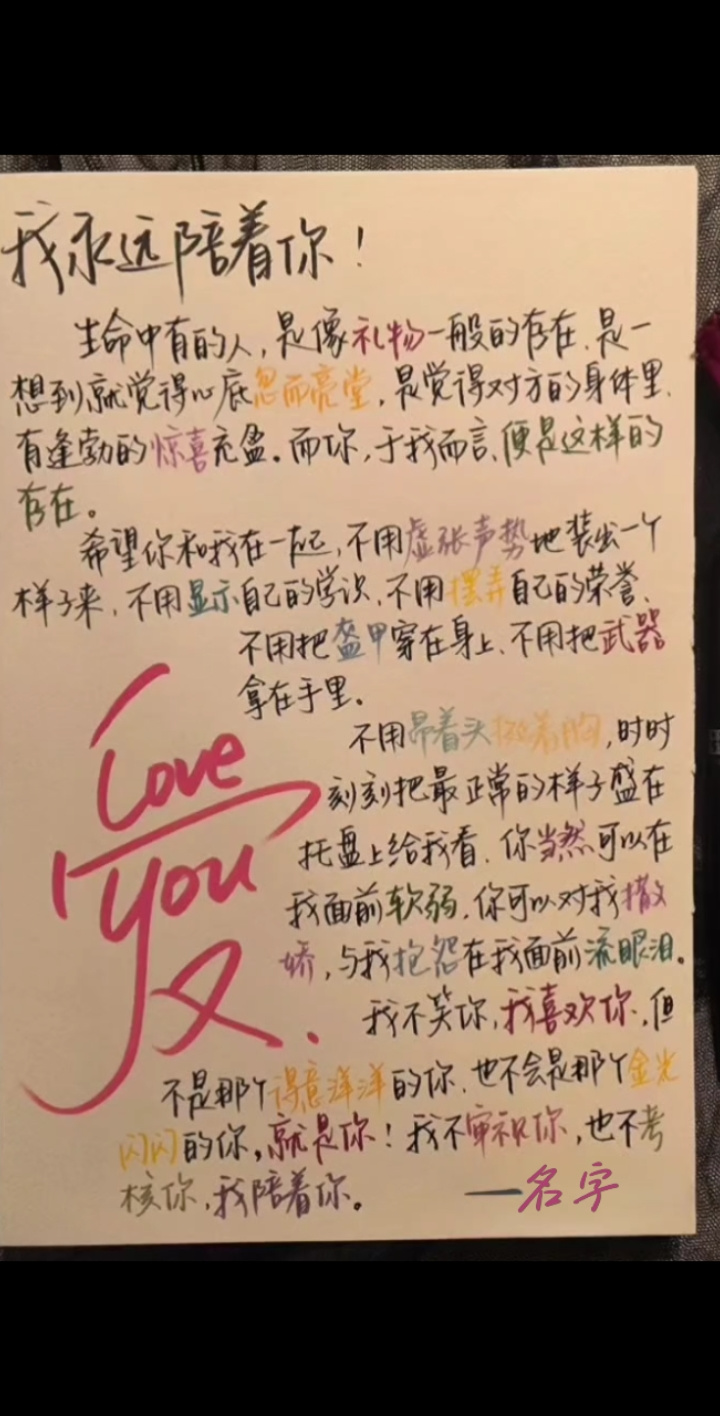 我永远陪着你！
生命中有的人，是像礼物一般的存在、是一
想到就觉得心底忽而亮堂，是觉得对方的身体里、
有蓬勃的惊喜充盈。而你，于我而言、便是这样的
存在。
希望你和我在一起，不用虚张声势地装出一个
样子来、不用显示自己的学识、不用摆弄自己的荣誉、
不用把盔甲穿在身上、不用把武器
拿在手里。
不用昂着头挺着胸，时时
刻刻把最正常的样子盛在
托盘上给我看、你当然可以在
我面前软弱、你可以对我撒
娇，与我抱怨在我面前流眼泪。
我不笑你，我喜欢你、但
不是那个得意洋洋的你、也不会是那个金光
闪闪的你，就是你！我不审视你，也不考
核你，我陪着你。
——名字
love
you